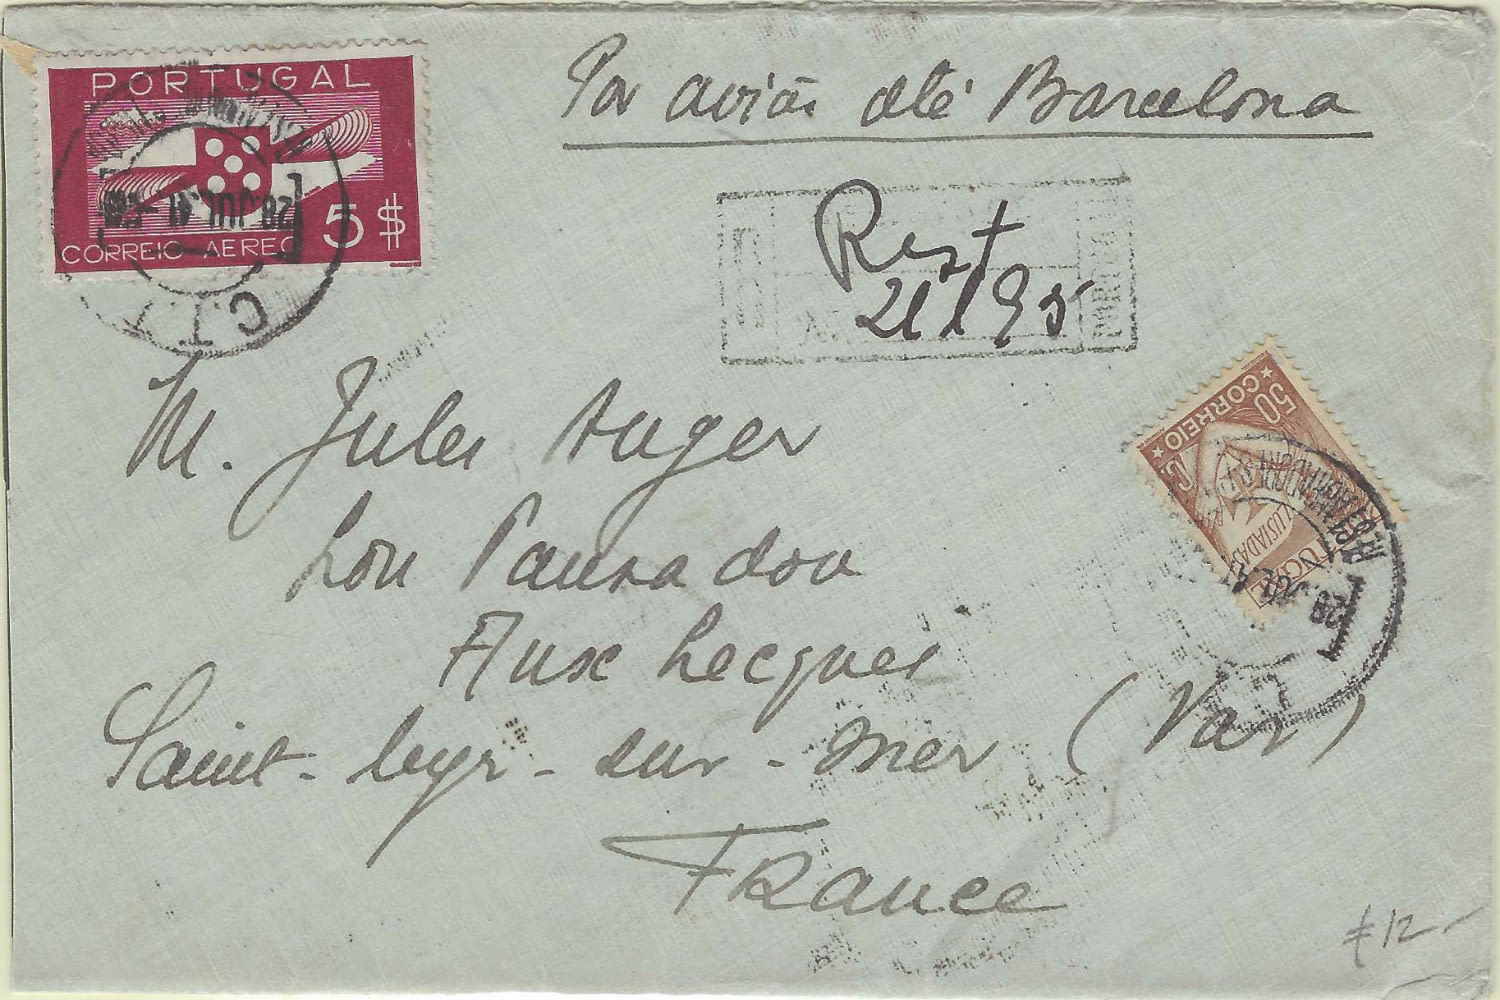 PORTUGAL
5$
CORREIO AEREO
28.JUL.41
C.T.T.
Por avião até Barcelona
Rest
21195
M. Jules Auger
Lou Pausadou
Aux Lecques
Saint-Cyr-sur-mer (Var)
France
50 C.
CORREIO
LUSIADAS
28.JUL.41
12